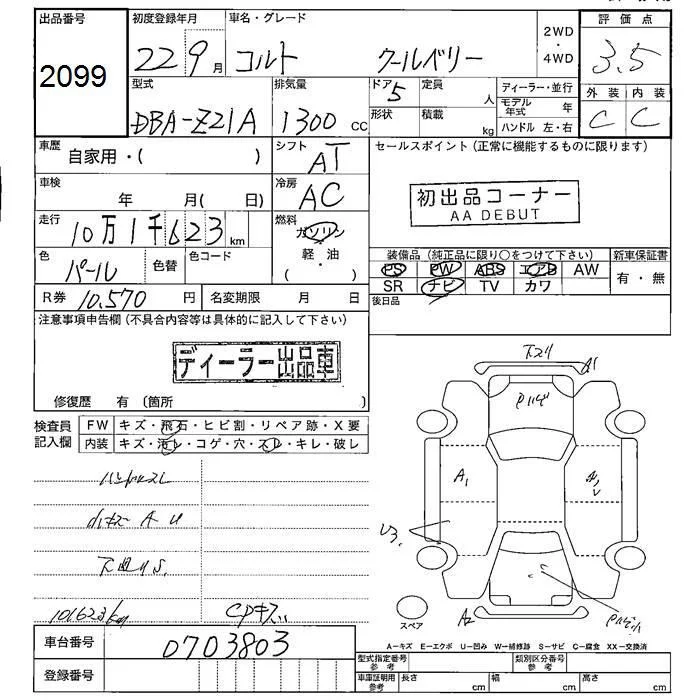 出品番号 初度登録年月 車名・グレード 2WD・4WD 評価点
2099 22 9月 コルト クールベリー 3.5
型式 排気量 ドア 5 定員 人 ディーラー・並行 外装 内装
DBA-Z21A 1300 cc 形状 積載 kg モデル年式 年 C C
ハンドル 左・右
車歴 自家用・( ) シフト AT セールスポイント(正常に機能するものに限ります)
車検 年 月( 日) 冷房 AC 初出品コーナー
AA DEBUT
走行 10万1千623km 燃料 ガソリン
軽・油
( )
色 パール 色替 色コード 装備品(純正品に限り○をつけて下さい) 新車保証書
PS PW ABS エアB AW 有・無
R券 10,570円 名変期限 月 日 SR ナビ TV カワ
後日品
注意事項申告欄(不具合内容等は具体的に記入して下さい)
ディーラー出品車
修復歴 有(箇所 )
検査員記入欄 FW キズ・飛石・ヒビ割・リペア跡・X要
内装 キズ・汚レ・コゲ・穴・スレ・キレ・破レ
ハンドルスレ
小キズ A U
101623km CPキズ
下スリ A1
A1
U3
A2
スペア
A-キズ E-エクボ U-凹み W-補修跡 S-サビ C-腐食 XX-交換済
車台番号 0703803
型式指定番号参考 類別区分番号参考
登録番号 車庫証明用参考 長さ cm 幅 cm 高さ cm